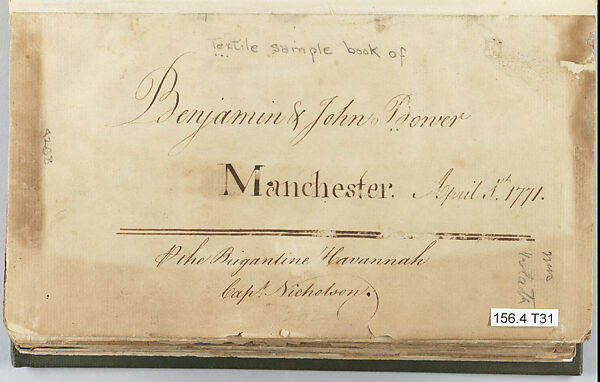 Textile sample book of
Benjamin & John Bower
Manchester. April 1st. 1771.
⅌ the Brigantine Havannah
Capt. Nicholson.
156.4 T31